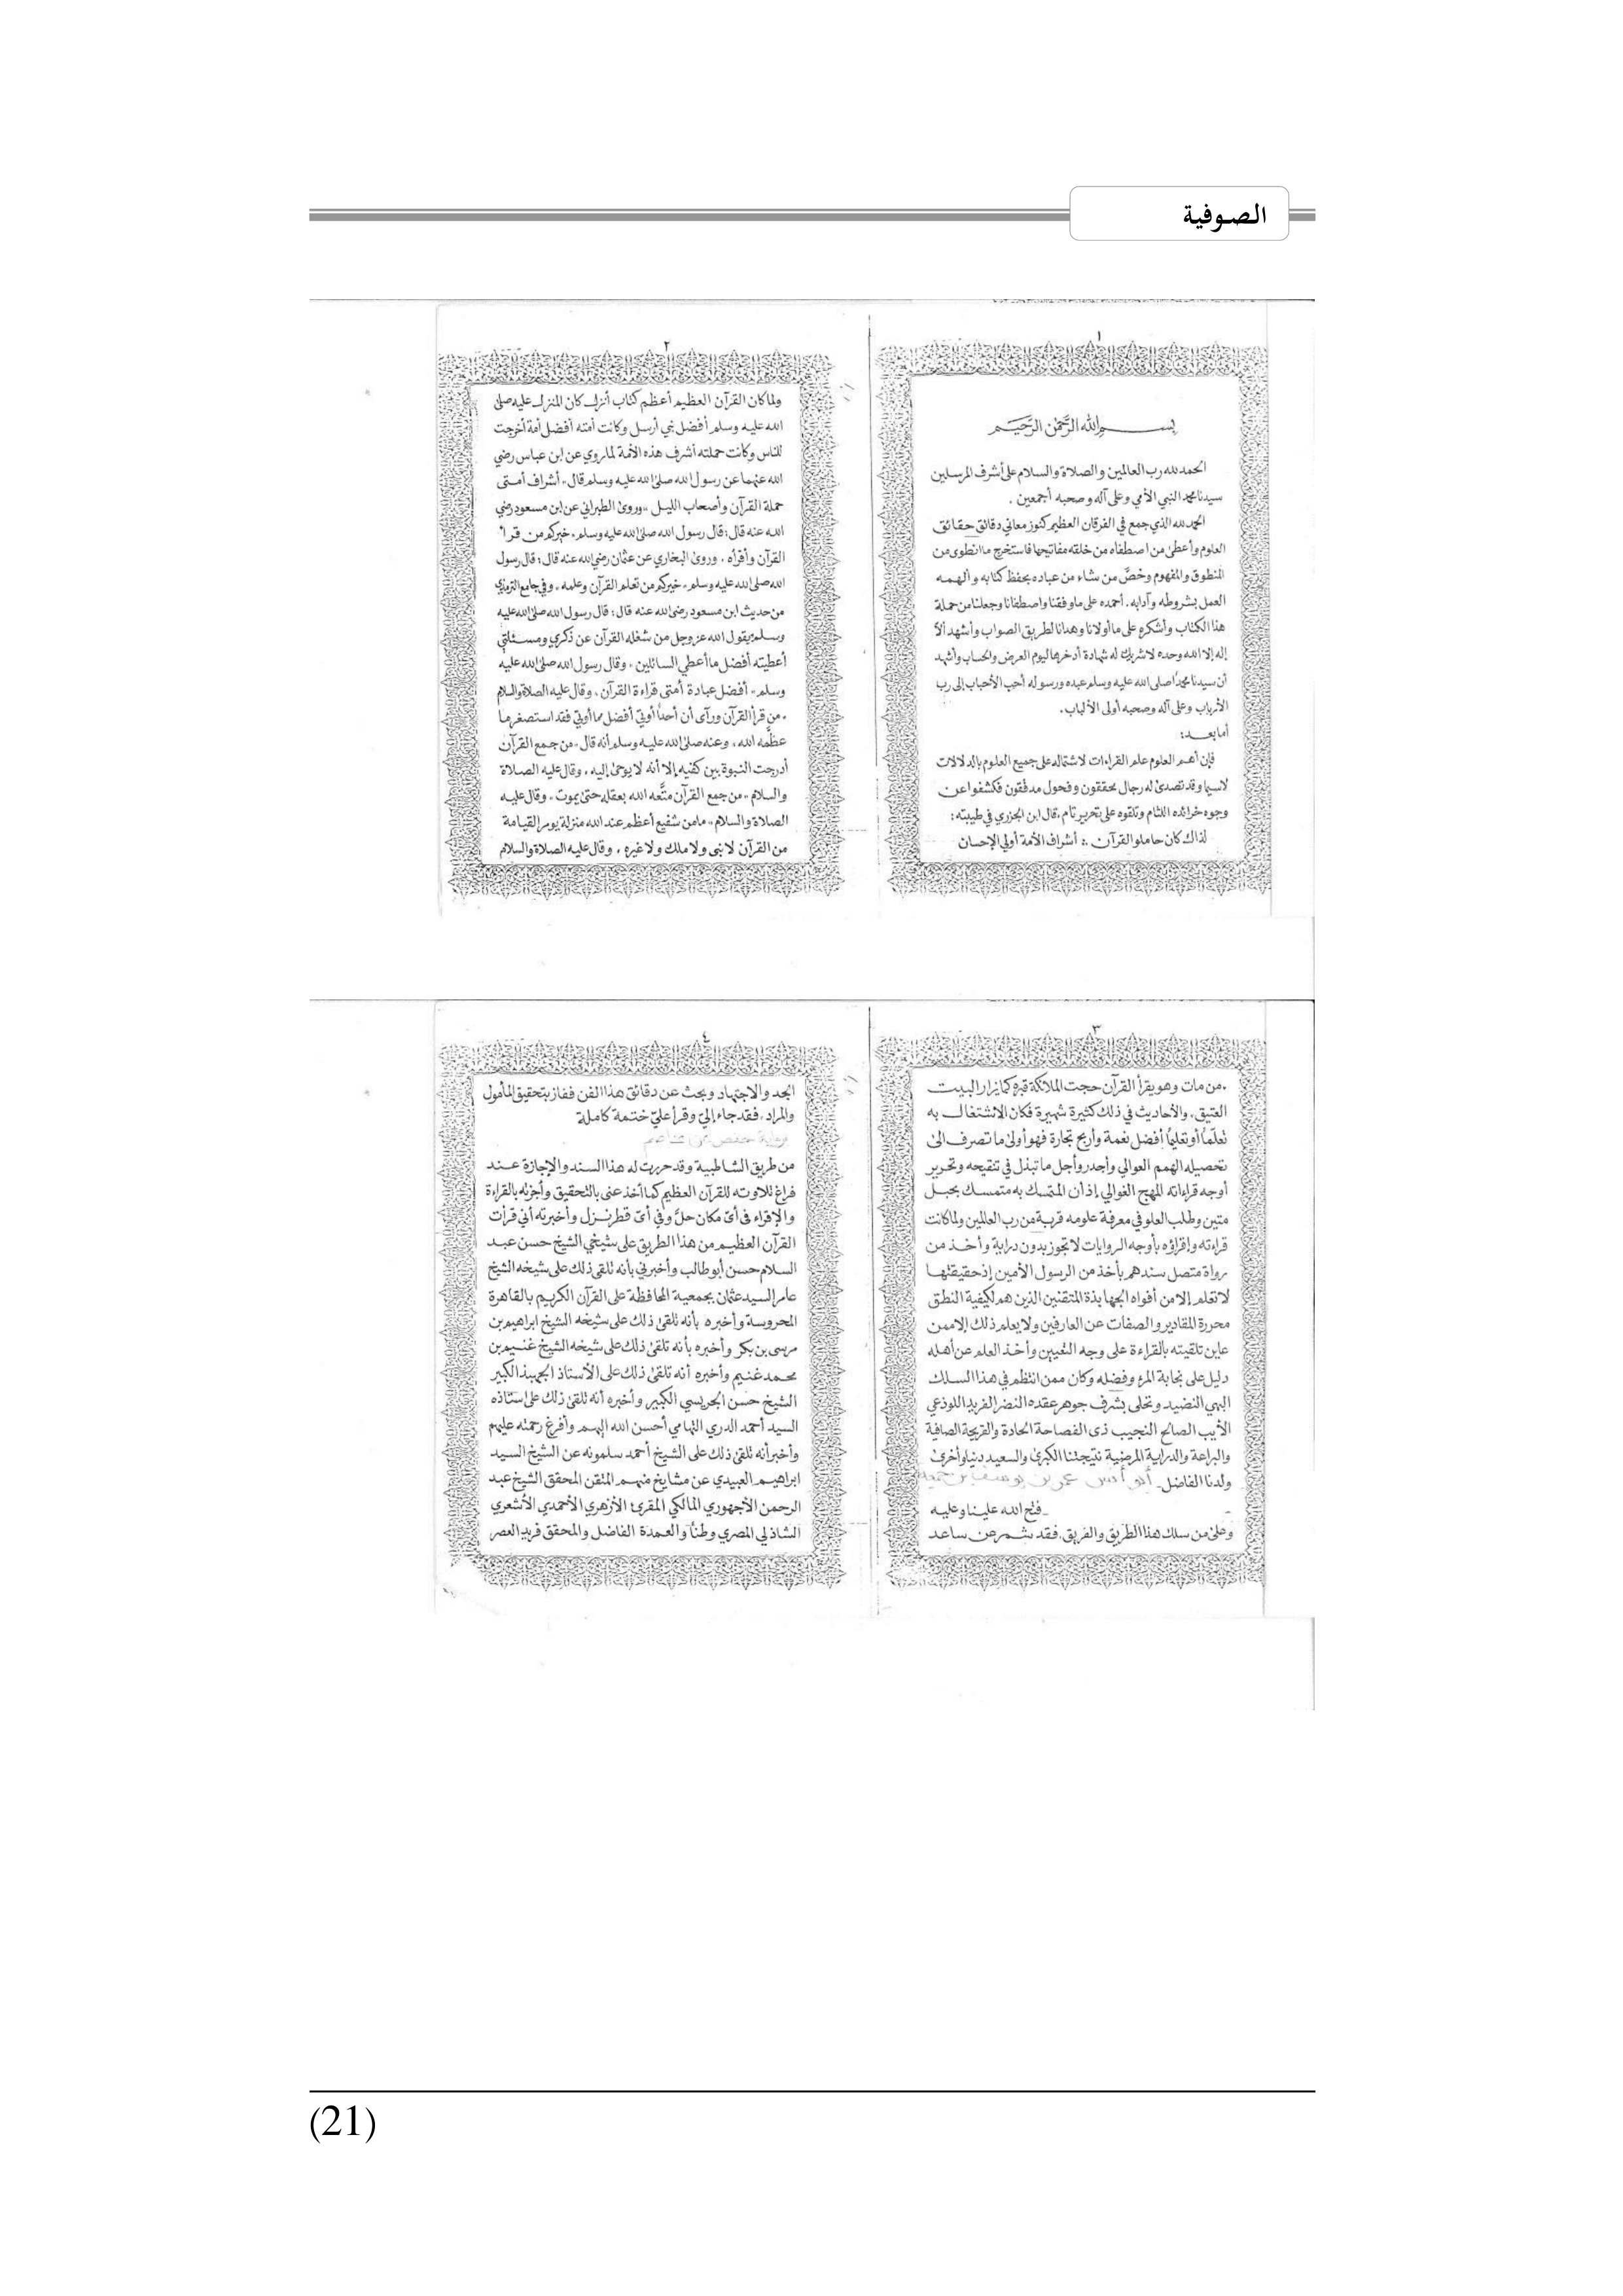 الصوفية
١
بسم الله الرحمن الرحيم
الحمد لله رب العالمين والصلاة والسلام على أشرف المرسلين
سيدنا محمد النبي الأمي وعلى آله وصحبه أجمعين .
الحمد لله الذي جمع في الفرقان العظيم كنوز معاني دقائق حقائق
العلوم وأعطى من اصطفاه من خلقه مفاتيحها فاستخرج ما انطوى من
المنطوق والمفهوم وخصَّ من شاء من عباده بحفظ كتابه وألهمه
العمل بشروطه وآدابه . أحمده على ما وفقنا واصطفانا وجعلنا من حملة
هذا الكتاب وأشكره على ما أولانا وهدانا لطريق الصواب وأشهد ألا
إله إلا الله وحده لا شريك له شهادة أدخرها ليوم العرض والحساب وأشهد
أن سيدنا محمدًا صلى الله عليه وسلم عبده ورسوله أحب الأحباب إلى رب
الأرباب وعلى آله وصحبه أولى الألباب .
أما بعد :
فإن أهم العلوم علم القراءات لاشتماله على جميع العلوم بالدلالات
لاسيما وقد تصدى له رجال محققون وفحول مدققون فكشفوا عن
وجوه خرائده اللثام وتلقوه على تحرير تام ، قال ابن الجزري في طيبته :
لذاك كان حاملو القرآن .: أشراف الأمة أولي الإحسان
٢
ولما كان القرآن العظيم أعظم كتاب أنزل كان المنزل عليه صلى
الله عليه وسلم أفضل نبي أرسل وكانت أمته أفضل أمة أخرجت
للناس وكانت حملته أشرف هذه الأمة لما روي عن ابن عباس رضي
الله عنهما عن رسول الله صلى الله عليه وسلم قال " أشراف أمتى
حملة القرآن وأصحاب الليل " وروى الطبراني عن ابن مسعود رضي
الله عنه قال : قال رسول الله صلى الله عليه وسلم " خيركم من قرأ
القرآن وأقرأه " وروى البخاري عن عثمان رضي الله عنه قال : قال رسول
الله صلى الله عليه وسلم " خيركم من تعلم القرآن وعلمه " وفي جامع الترمذي
من حديث ابن مسعود رضي الله عنه قال : قال رسول الله صلى الله عليه
وسلم : يقول الله عز وجل من شغله القرآن عن ذكري ومسئلتي
أعطيته أفضل ما أعطي السائلين " وقال رسول الله صلى الله عليه
وسلم " أفضل عبادة أمتى قراءة القرآن " وقال عليه الصلاة والسلام
" من قرأ القرآن ورأى أن أحدًا أوتي أفضل مما أوتي فقد استصغر ما
عظَّمه الله " وعنه صلى الله عليه وسلم أنه قال " من جمع القرآن
أدرجت النبوة بين كتفيه إلا أنه لا يوحى إليه " وقال عليه الصلاة
والسلام " من جمع القرآن متَّعه الله بعقله حتى يموت " وقال عليه
الصلاة والسلام " ما من شفيع أعظم عند الله منزلة يوم القيامة
من القرآن لا نبى ولا ملك ولا غيره " وقال عليه الصلاة والسلام
٣
" من مات وهو يقرأ القرآن حجت الملائكة قبره كما يزار البيت
العتيق " والأحاديث في ذلك كثيرة شهيرة فكان الاشتغال به
تعلّمًا أو تعليمًا أفضل نعمة وأربح تجارة فهو أولى ما تصرف الى
تحصيله الهمم العوالي وأجدر وأجل ما تبذل في تنقيحه وتحرير
أوجه قراءاته المهج الغوالي إذ أن المتمسك به متمسك بحبل
متين وطلب العلو في معرفة علومه قربة من رب العالمين ولما كانت
قراءته وإقراؤه بأوجه الروايات لا تجوز بدون دراية وأخذ من
رواة متصل سندهم بأخذ من الرسول الأمين إذ حقيقتها
لا تعلم إلا من أفواه الجهابذة المتقنين الذين هم لكيفية النطق
محررة المقادير والصفات عن العارفين ولا يعلم ذلك إلا ممن
عاين تلقيته بالقراءة على وجه التعيين وأخذ العلم عن أهله
دليل على نجابة المرء وفضله وكان ممن انتظم في هذا السلك
البهي النضيد وتحلى بشرف جوهر عقده النضر الفريد اللوذعي
الأيب الصالح النجيب ذى الفصاحة الحادة والقريحة الصافية
والبراعة والدراية المرضية نتيجتنا الكبرى والسعيد دنيا وأخرى
ولدنا الفاضل . أبو أنس عمر بن يوسف بن
فتح الله علينا وعليه
وعلى من سلك هذا الطريق والفريق ، فقد شمر عن ساعد
٤
الجد والاجتهاد وبحث عن دقائق هذا الفن ففاز بتحقيق المأمول
والمراد ، فقد جاء إليّ وقرأ عليّ ختمة كاملة
رواية حفص عن عاصم
من طريق الشاطبية وقد حررت له هذا السند والإجازة عند
فراغ تلاوته للقرآن العظيم كما أخذ عنى بالتحقيق وأجزته بالقراءة
والإقراء فى أىّ مكان حلّ وفي أىّ قطر نزل وأخبرته أني قرأت
القرآن العظيم من هذا الطريق على شيخي الشيخ حسن عبد
السلام حسن أبو طالب وأخبرني بأنه تلقى ذلك على شيخه الشيخ
عامر السيد عثمان بجمعية المحافظة على القرآن الكريم بالقاهرة
المحروسة وأخبره بأنه تلقى ذلك على شيخه الشيخ ابراهيم بن
مرسى بن بكر وأخبره بأنه تلقى ذلك على شيخه الشيخ غنيم بن
محمد غنيم وأخبره أنه تلقى ذلك على الأستاذ الجهبذ الكبير
الشيخ حسن الجريسي الكبير وأخبره أنه تلقى ذلك على استاذه
السيد أحمد الدري التهامي أحسن الله إليهم وأفرغ رحمته عليهم
وأخبر أنه تلقى ذلك على الشيخ أحمد سلمونه عن الشيخ السيد
ابراهيم العبيدي عن مشايخ منهم المتقن المحقق الشيخ عبد
الرحمن الأجهوري المالكي المقرئ الأزهري الأحمدي الأشعري
الشاذلي المصري وطنًا والعمدة الفاضل والمحقق فريد العصر
(21)